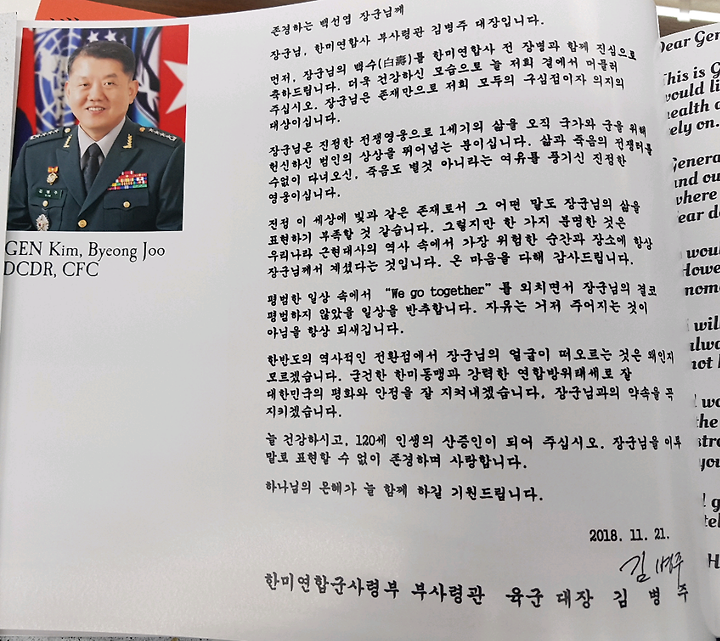 GEN Kim, Byeong Joo
DCDR, CFC
존경하는 백선엽 장군님께
장군님, 한미연합사 부사령관 김병주 대장입니다.
먼저, 장군님의 백수(白壽)를 한미연합사 전 장병과 함께 진심으로
축하드립니다. 더욱 건강하신 모습으로 늘 저희 곁에서 머물러
주십시오. 장군님은 존재만으로 저희 모두의 구심점이자 의지의
대상이십니다.
장군님은 진정한 전쟁영웅으로 1세기의 삶을 오직 국가와 군을 위해
헌신하신 범인의 상상을 뛰어넘는 분이십니다. 삶과 죽음의 전쟁터를
수없이 다녀오신, 죽음도 별것 아니라는 여유를 풍기신 진정한
영웅이십니다.
진정 이 세상에 빛과 같은 존재로서 그 어떤 말도 장군님의 삶을
표현하기 부족할 것 같습니다. 그렇지만 한 가지 분명한 것은
우리나라 근현대사의 역사 속에서 가장 위험한 순간과 장소에 항상
장군님께서 계셨다는 것입니다. 온 마음을 다해 감사드립니다.
평범한 일상 속에서 “We go together”를 외치면서 장군님의 결코
평범하지 않았을 일상을 반추합니다. 자유는 거저 주어지는 것이
아님을 항상 되새깁니다.
한반도의 역사적인 전환점에서 장군님의 얼굴이 떠오르는 것은 왜인지
모르겠습니다. 굳건한 한미동맹과 강력한 연합방위태세로 잘
대한민국의 평화와 안정을 잘 지켜내겠습니다. 장군님과의 약속을 꼭
지키겠습니다.
늘 건강하시고, 120세 인생의 산증인이 되어 주십시오. 장군님을 이루
말로 표현할 수 없이 존경하며 사랑합니다.
하나님의 은혜가 늘 함께 하길 기원드립니다.
2018. 11. 21.
김병주
한미연합군사령부 부사령관 육군 대장 김 병 주
Dear Gen
This is G
would li
health
rely on.
Genera
and ou
where
dear d
would
Howe
mom
will
alwa
not
wo
the
stro
you